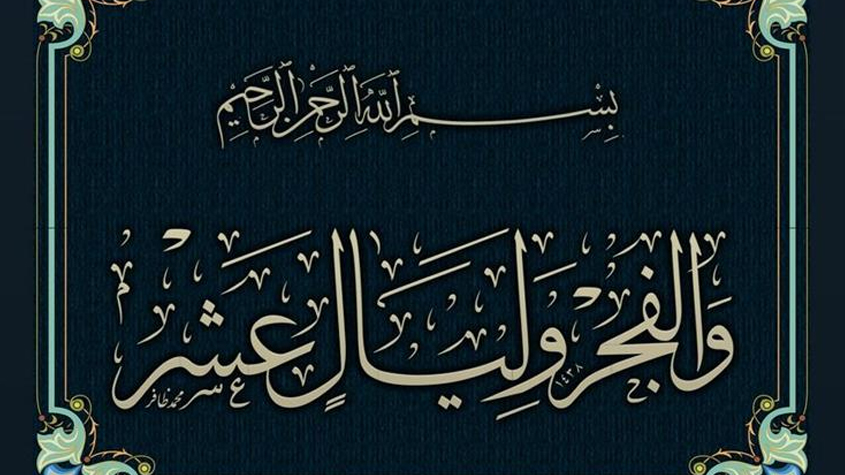 بِسْمِ اللَّهِ الرَّحْمَٰنِ الرَّحِيمِ
وَالْفَجْرِ وَلَيَالٍ عَشْرٍ
١٤٣٨
محمد ظافر